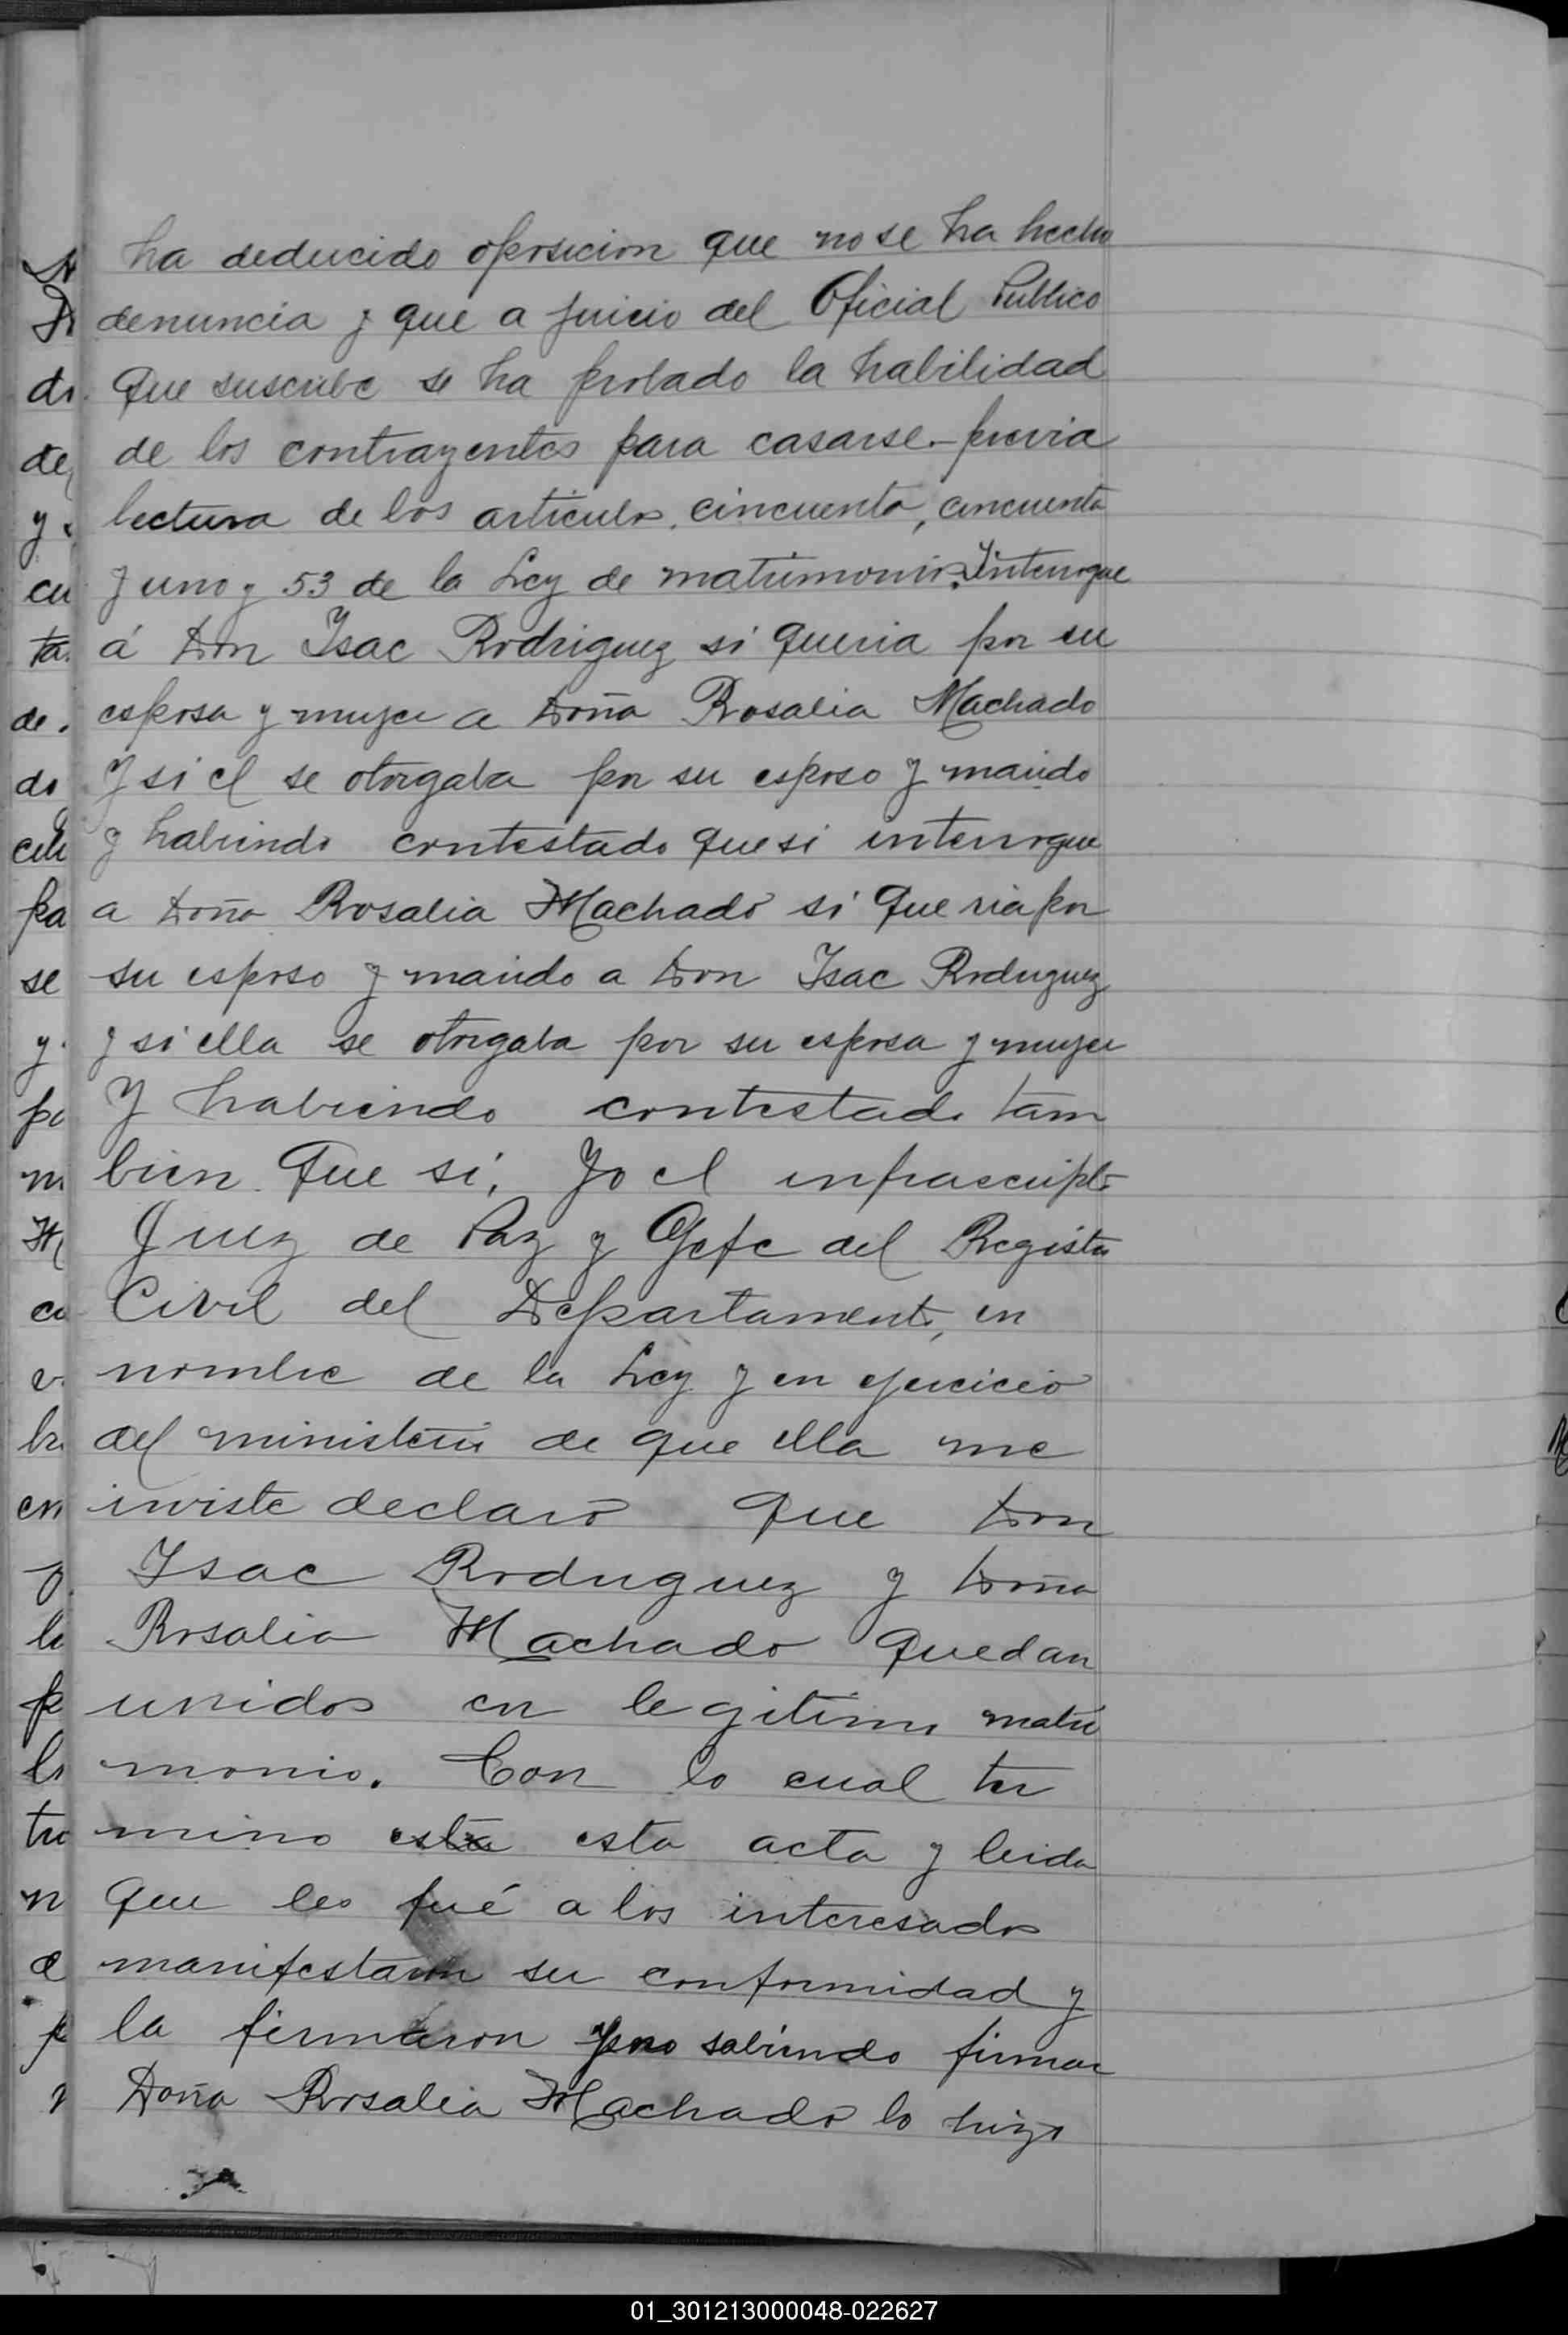 ha deducido oposicion que no se ha hecho
denuncia y que a juicio del Oficial Publico
que suscribe se ha probado la habilidad
de los contrayentes para casarse. previa
lectura de los articulos, cincuenta, cincuenta
y uno y 53 de la Ley de matrimonio. Interrogue
á Don Isac Rodriguez si queria por su
esposa y mujer a Doña Rosalia Machado
y si el se otorgaba por su esposo y marido
y habiendo contestado que si interrogue
a Doña Rosalia Machado si queria por
su esposo y marido a Don Isac Rodriguez
y si ella se otorgaba por su esposa y mujer
Y habiendo contestado tam
bien que si, Yo el infrascripto
Juez de Paz y Gefe del Registro
Civil del Departamento, en
nombre de la Ley y en ejercicio
del ministerio de que ella me
inviste declaro que Don
Isac Rodriguez y Doña
Rosalia Machado quedan
unidos en legitimo matri
monio. Con lo cual ter
mino esta esta acta y leida
que les fué a los interesados
manifestaron su conformidad y
la firmaron no sabiendo firmar
Doña Rosalia Machado lo hizo
01_301213000048-022627